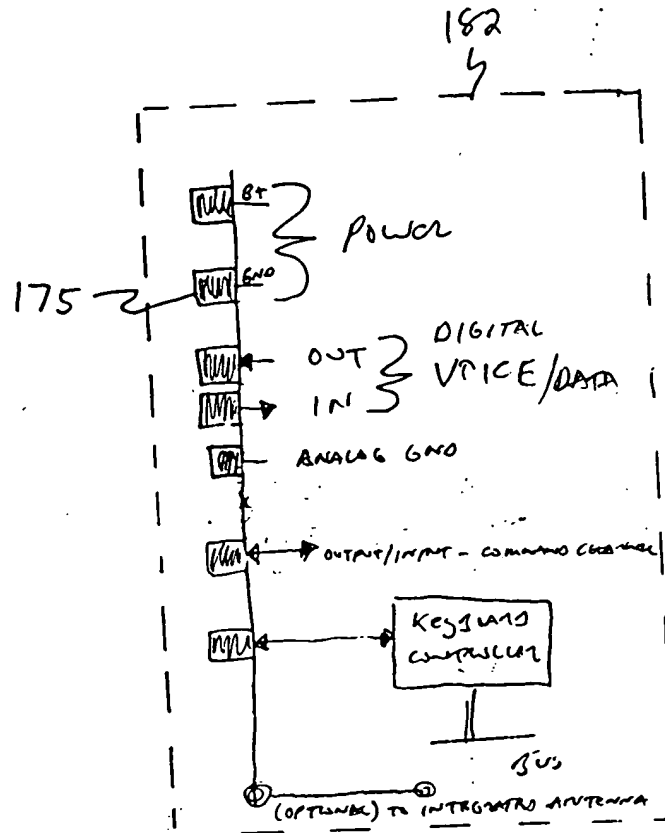 182
B+
POWER
GND
175
OUT
DIGITAL
VOICE/DATA
IN
ANALOG GND
OUTPUT/INPUT - COMMAND CHANNEL
KEYBOARD
CONTROLLER
BUS
(OPTIONAL) TO INTEGRATED ANTENNA